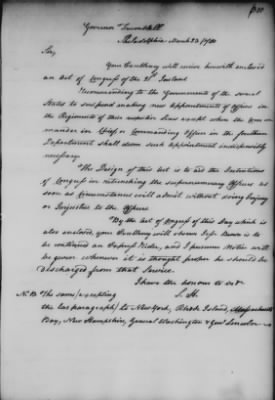 Governor Trumbull
Philadelphia March 23 1780
Sir,
Your Excellency will receive herewith enclosed
an Act of Congress of the 21st Instant
Recommending to the Governments of the several
States to suspend making new appointments of Officers in
the Regiments of their respective Lines except when the Com
mander in Chief or Commanding Officer in the southern
Department shall deem such appointment indispensibly
necessary.
The Design of this Act is to aid the Intentions
of Congress in retrenching the supernumerary Officers as
soon as Circumstances will admit without doing Injury
or Injustice to the Officers.
By the Act of Congress of this Day which is
also enclosed, your Excellency will observe Jesse Brown is to
be continued an Express Rider, and I presume Notice will
be given whenever it is thought proper he should be
discharged from that Service.
I have the honour to be &c
S. H.
N. B. The same (excepting
the last paragraph) to New York, Rhode Island, Massachusetts
Bay, New Hampshire, General Washington & Genl Lincoln